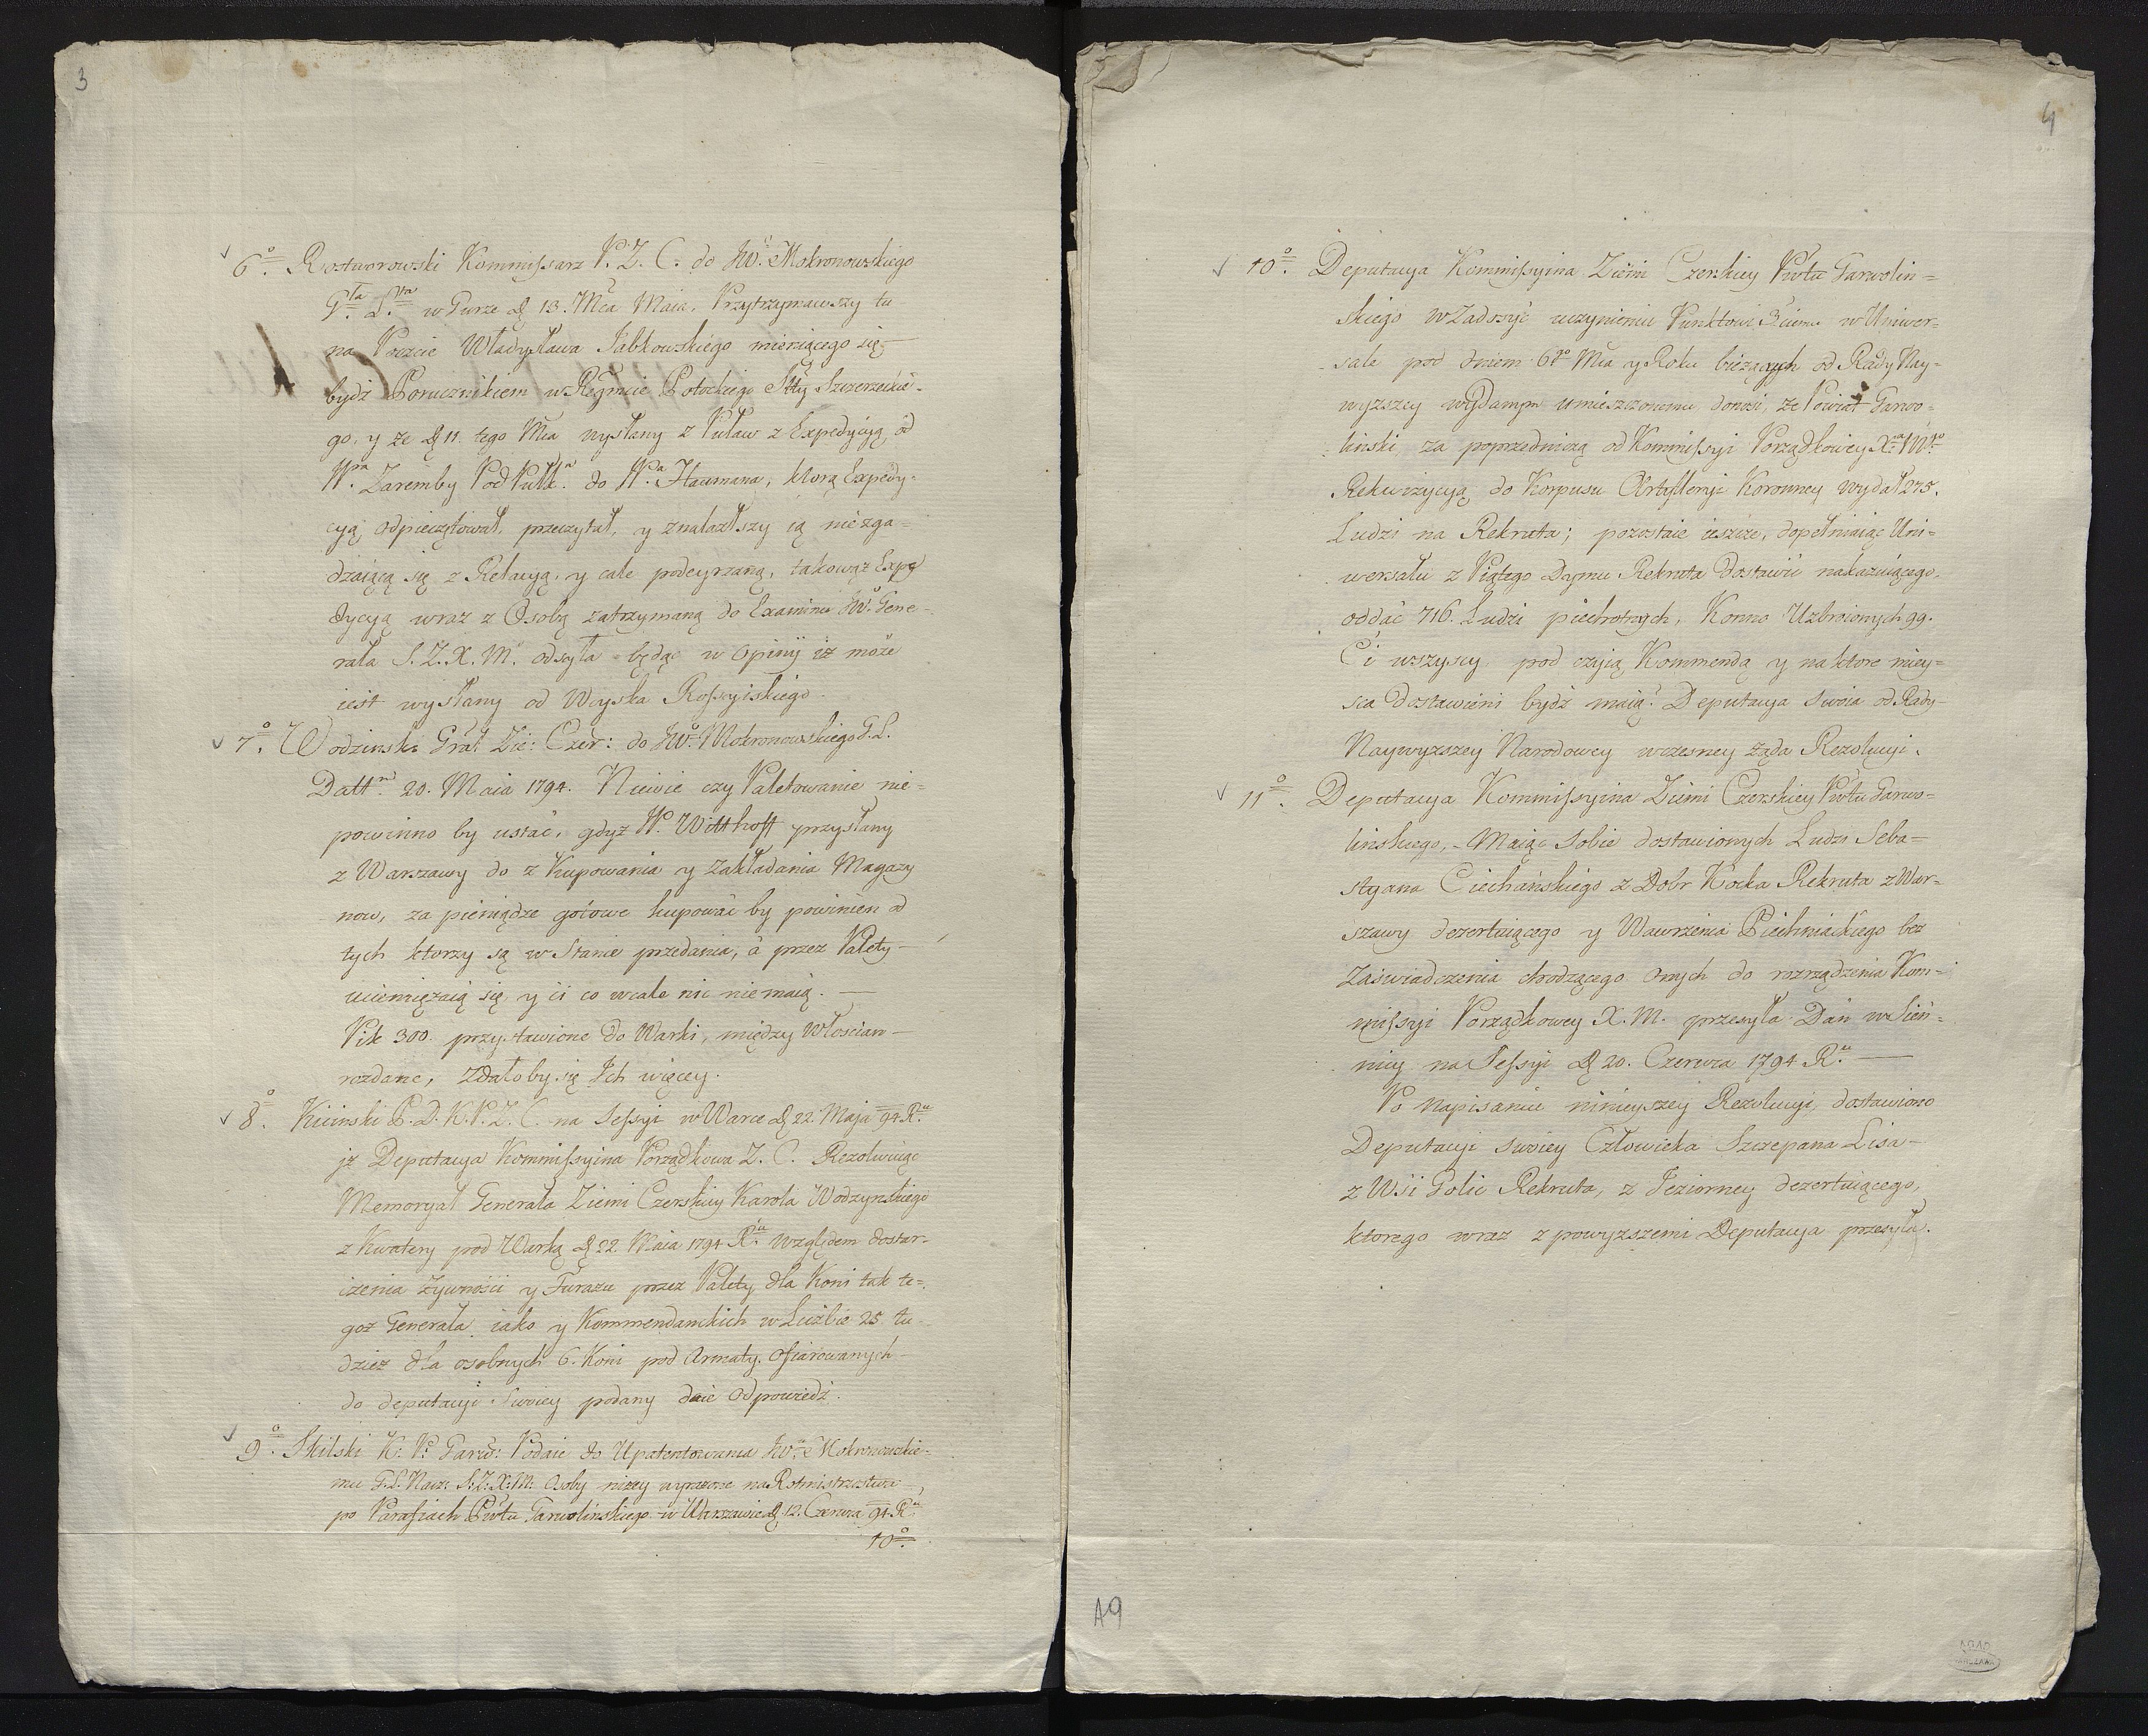 3
6º. Rostworowski Kommissarz P. Z. C. do JW. Mokronowskiego
Gła. Lta. w Gurze D. 13. Mca Maia. Przytrzymawszy tu
na Poczcie Władysława Jabkowskiego mieniącego się
bydź Porucznikiem w Regmcie Potockiego Stty Szczerzeckie-
go, y że D 11. tego Mca wysłany z Puław z Expedycyą od
Wa. Zaremby PodPułk. do Wa. Haumana, ktorą Expedy-
cyą odpieczętował, przeczytał, y znalazłszy ią niezga-
dzaiącą się z Relacyą, y cale podeyrzaną, takowąż Expe
dycyą wraz z Osobą zatrzymaną do Examinu JW. Gene-
rała S. Z. X. M. odsyła będąc w Opinij iż może
iest wysłany od Woyska Rossyiskiego.
7º. Wodzinski Grał Zie: Czer: do JWo. Mokronowskiego G. L.
Datt. 20. Maia 1794. Niewie czy Paletowanie nie-
powinno by ustać, gdyż W. Witthoff przysłany
z Warszawy do z Kupowania y zakładania Magazy
now, za pieniądze gotowe kupować by powinien od
tych ktorzy są w Stanie przedania, á przez Palety
uciemiężaią się y ci co wcale nic niemaią.
Pik 300. przystawione do Warki, między Włoscian
rozdane, Zdałoby się Ich więcey.
8º. Kicinski P. D. K. P. Z. C. na Sessyi w Warce D 22. Maja 94. Ru
iż Deputacya Kommissyina Porządkowa Z. C. Rezolwuiąc
Memoryał Generała Ziemi Czerskiey Karola Wodzynskiego
z Kwatery pod Warką D 22. Maia 1794 Ru. względem dostar-
czenia żywności y Furazu przez Palety dla Koni tak te-
goż Generała iako y Kommendanckich w Liczbie 25. tu-
dzież dla osobnych 6. Koni pod Armaty. Ofiarowanych
do deputacyi Swoiey podany daie Odpowiedź.
9º. Skilski K: P: Garw: Podaie do Upatentowania JWo. Mokronowskie-
mu G. L. Nacz: S: Z: X: M: Osoby niżey wyrażone na Rotmistrzostwa
po Parafiach Pwtu Garwolinskiego w Warszawie D. 12. Czerwca 94. Ru
10º.
4
10º. Deputacya Kommissyina Ziemi Czerskiey Pwtu Garwolin=
skiego w Zadosyć uczynieniu Punktowi 3ciemu w Uniwer-
sale pod dniem 6go Mca y Roku bieżących od Rady Nay-
wyzszey wydanym umieszczonemu donosi, że Powiat Garwo-
linski za poprzedniczą od Kommissyi Porządkowey Xa Mo
Rekwizycyą do Korpusu Artylleryi Koronney wydał 275.
Ludzi na Rekruta; pozostaie ieszcze, dopełniaiąc Uni-
wersału z Piątego Dymu Rekruta dostawić nakazuiącego.
oddać 716. Ludzi piechotnych, Konno Uzbroionych 99.
Ci wszyscy pod czyią Kommendą y na ktore miey-
sca dostawieni bydź maią? Deputacya Swoia od Rady
Naywyzszey Narodowey wczesney żąda Rezolucyi.
11º. Deputacya Kommissyina Ziemi Czerskiey Pwtu Garwo-
linskiego, Maiąc Sobie dostawionych Ludzi Seba-
styana Ciechańskiego z Dobr Kocka Rekruta z War-
szawy dezertuiącego y Wawrzenca Piechniackiego bez
Zaświadczenia chodzącego Onych do rozrządzenia Kom-
missyi Porządkowey X. M. przesyła Dań w Sien-
nicy na Sessyi D 20. Czerwca 1794. Ru.
Po Napisaniu ninieyszey Rezolucyi, dostawiono
Deputacyi Swoiey Człowieka Szczepana Lisa
z Wsi Golic Rekruta, z Jeziorney dezertuiącego,
ktorego wraz z powyzszemi Deputacya przesyła.
A9
AGAD
WARSZAWA